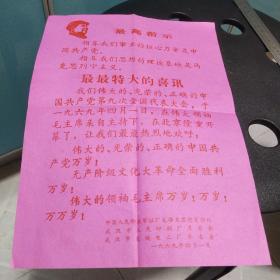 最高指示
指导我们事业的核心力量是中
国共产党。
指导我们思想的理论基础是马
克思列宁主义。
最最特大的喜讯
我们伟大的、光荣的、正确的中
国共产党第九次全国代表大会，于
一九六九年四月一日，在伟大领袖
毛主席亲自主持下，在北京隆重开
幕了，让我们最最热烈地欢呼：
伟大的、光荣的、正确的中国共
产党万岁！
无产阶级文化大革命全面胜利
万岁！
伟大的领袖毛主席万岁！万岁！
万万岁！
一九六九年四月一日